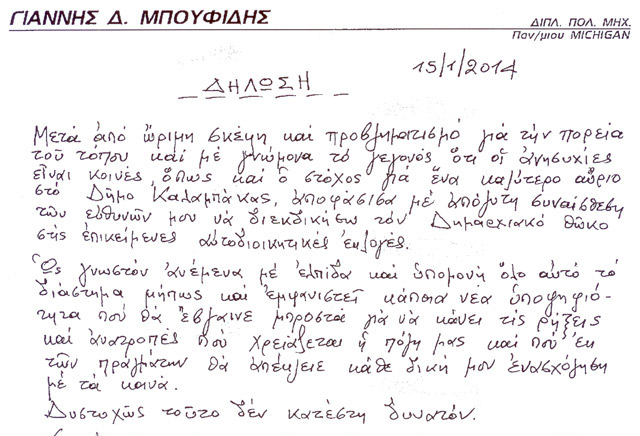 ΓΙΑΝΝΗΣ Δ. ΜΠΟΥΦΙΔΗΣ
ΔΙΠΛ. ΠΟΛ. ΜΗΧ.
Παν/μιου MICHIGAN
15/1/2014
ΔΗΛΩΣΗ
Μετά ἀπό ὥριμη σκέψη καί προβληματισμό γιά τήν πορεία
τοῦ τόπου καί μέ γνώμονα τό γεγονός ὅτι οἱ ἀνησυχίες
εἶναι κοινές, ὅπως καί ὁ στόχος γιά ἕνα καλύτερο αὔριο
στό Δῆμο Καλαμπάκας, ἀποφάσισα μέ ἀπόλυτη συναίσθεση
τῶν εὐθυνῶν μου νά διεκδικήσω τόν Δημαρχιακό θῶκο
στίς ἐπικείμενες αὐτοδιοικητικές ἐκλογές.
Ὡς γνωστόν ἀνέμενα μέ ἐλπίδα καί ὑπομονή ὅλο αὐτό τό
διάστημα μήπως καί ἐμφανιστεῖ κάποια νέα ὑποψηφιό-
τητα πού θά ἔβγαινε μπροστά γιά νά κάνει τίς ρήξεις
καί ἀνατροπές πού χρειάζεται ἡ πόλη μας καί πού ἐκ
τῶν πραγμάτων θά ἀπέκλειε κάθε δική μου ἐνασχόληση
μέ τά κοινά.
Δυστυχῶς τοῦτο δέν κατέστη δυνατόν.